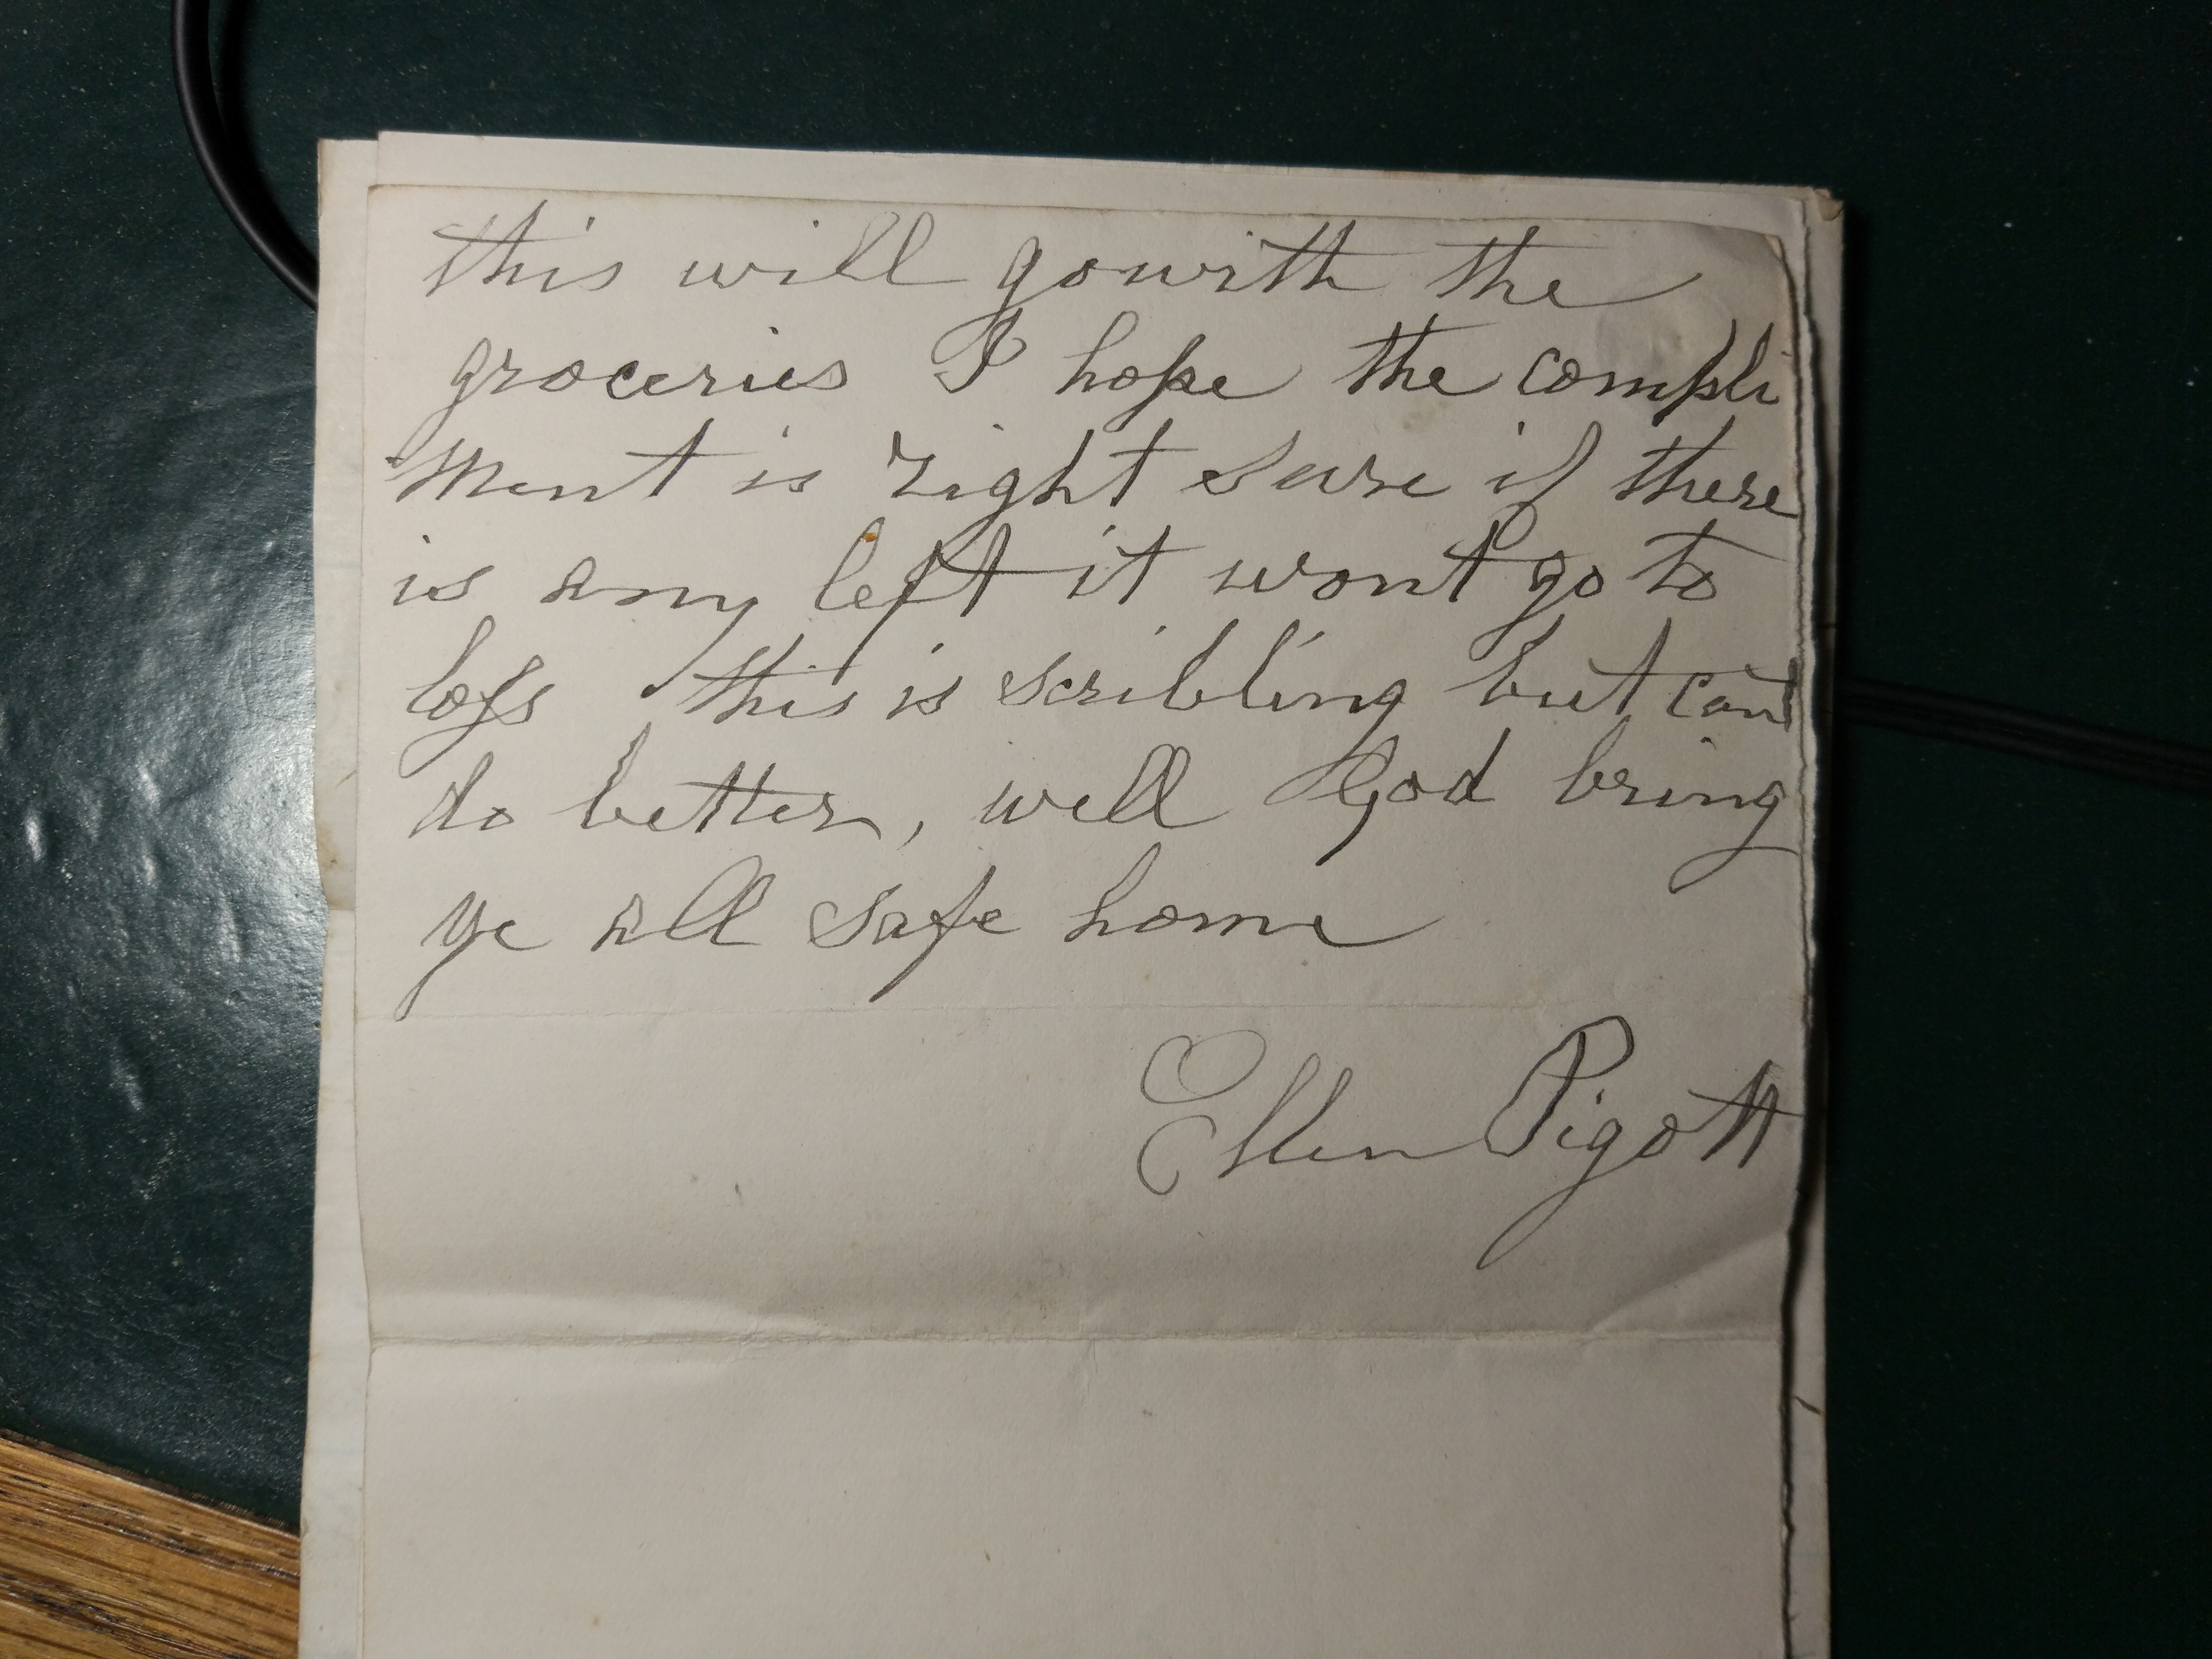 this will go with the
groceries I hope the compli
ment is right sure if there
is any left it wont go to
loss this is scribling but cant
do better, well God bring
ye all safe home
Ellen Pigott